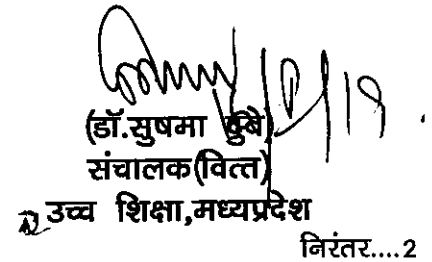 (डॉ.सुषमा दुबे)
संचालक(वित्त)
उच्च शिक्षा,मध्यप्रदेश
निरंतर....2